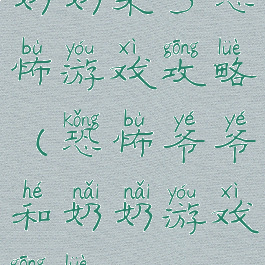 奶奶来了恐
bù yóu xì gōng lüè
怖游戏攻略
kǒng bù yé yé
（恐怖爷爷
hé nǎi nǎi yóu xì
和奶奶游戏
gōng lüè